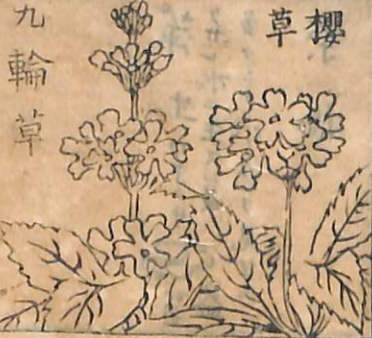 櫻草
九輪草